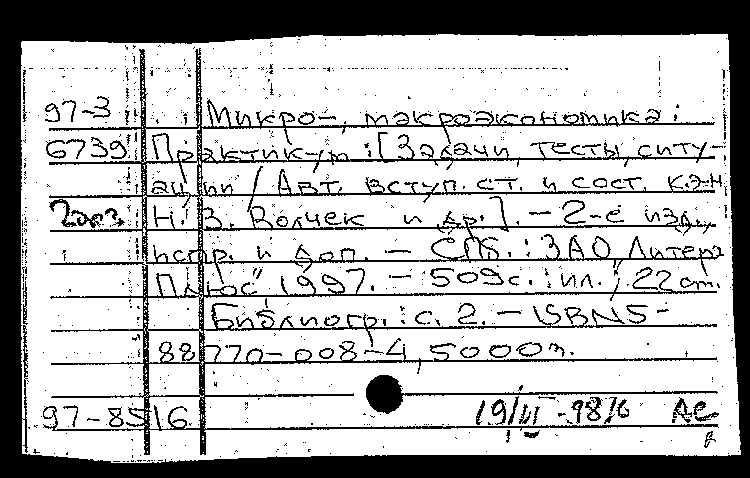 97-3 Микро-, макроэкономика:
6739 Практикум: [Задачи, тесты, ситу-
ации / Авт. вступ. ст. и сост. к.э.н
2 экз. Н. З. Волчек и др.]. - 2-е изд.,
испр. и доп. - СПб.: ЗАО "Литера
Плюс" 1997. - 509 с.: ил.; 22 см.
Библиогр.: с. 2. - ISBN 5-
88770-008-4, 5000 э.
97-8516 19/VI-98 Ас